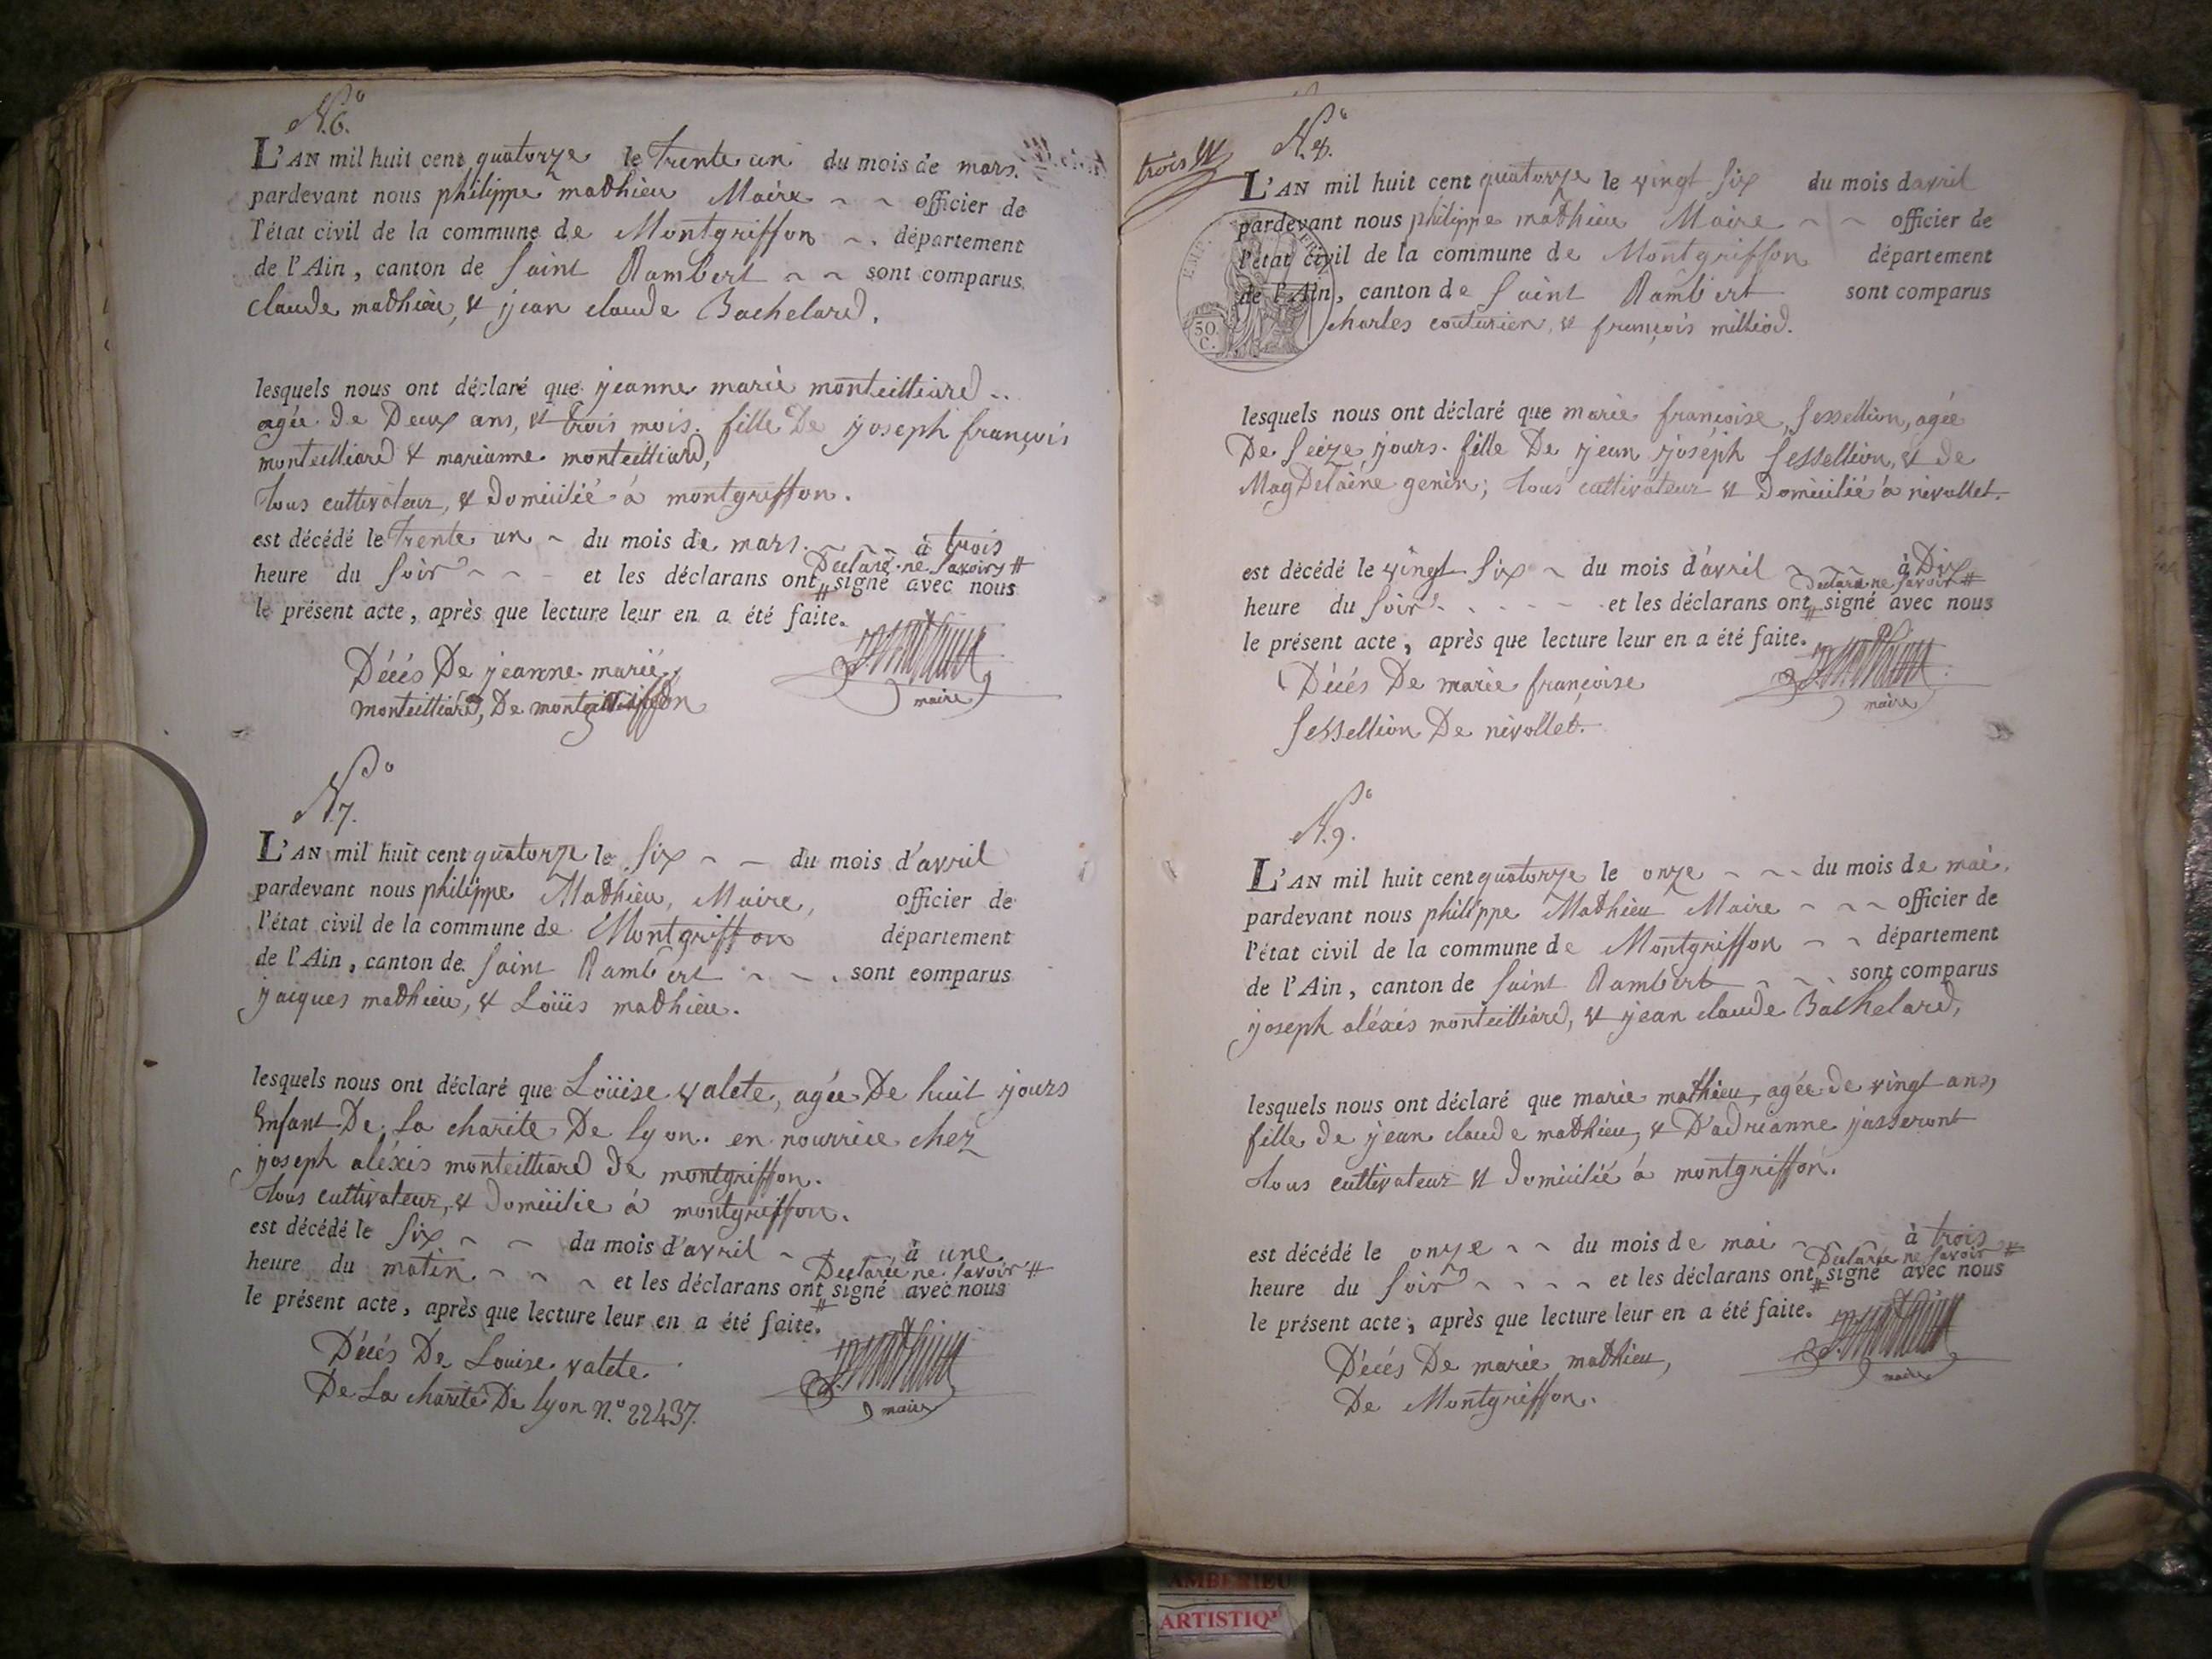 N.° 6.
L'AN mil huit cent quatorze le trente un du mois de mars.
pardevant nous philippe mathieu Maire officier de
l'état civil de la commune de Montgriffon département
de l'Ain, canton de Saint Rambert sont comparus
claude mathieu, & jean claude Bachelard.
lesquels nous ont déclaré que jeanne marie monteilliard
agée de Deux ans, & trois mois. fille De joseph françois
monteilliard & marianne monteilliard,
tous cultivateur, & Domicilié à montgriffon.
est décédé le trente un du mois de mars. à trois
Declaré ne savoir #
heure du Soir et les déclarans ont # signé avec nous
le présent acte, après que lecture leur en a été faite.
Décés De jeanne marie
monteilliard, De montgriffon
maire
N.° 7.
L'AN mil huit cent quatorze le Six du mois d'avril
pardevant nous philippe Mathieu, Maire, officier de
l'état civil de la commune de Montgriffon département
de l'Ain, canton de Saint Rambert sont comparus
jacques mathieu, & Loüis mathieu.
lesquels nous ont déclaré que Loüise valete, agée De huit jours
Enfant De La charité De lyon. en nourrice chez
joseph aléxis monteilliard de montgriffon.
tous cultivateur, & Domicilié à montgriffon.
est décédé le Six du mois d'avril à une
Declaré ne savoir #
heure du matin et les déclarans ont # signé avec nous
le présent acte, après que lecture leur en a été faite.
Décés De Louise valete
De La charité De lyon N.° 22437.
maire
trois
N.° 8.
L'AN mil huit cent quatorze le vingt Six du mois davril
pardevant nous philippe mathieu Maire officier de
l'état civil de la commune de Montgriffon département
de l'Ain, canton de Saint Rambert sont comparus
50 C.
charles couturier, & françois milliod.
lesquels nous ont déclaré que marie françoise, Sessellion, agée
De Seize jours. fille De jean joséph Sessellion, & de
MagDelaine genin; tous cultivateur & Domicilié à nivollet.
est décédé le vingt Six du mois d'avril à Dix
Declaré ne savoir #
heure du Soir et les déclarans ont # signé avec nous
le présent acte, après que lecture leur en a été faite.
Décés De marie françoise
Sessellion De nivollet.
maire
N.° 9.
L'AN mil huit cent quatorze le onze du mois de mai.
pardevant nous philippe Mathieu Maire officier de
l'état civil de la commune de Montgriffon département
de l'Ain, canton de Saint Rambert sont comparus
joseph aléxis monteilliard, & jean claude Bachelard,
lesquels nous ont déclaré que marie mathieu, agée de vingt ans,
fille de jean claude mathieu, & D'adrianne jasseront
tous cultivateur & domicilié à montgriffon.
est décédé le onze du mois de mai à trois
Declaré ne savoir #
heure du Soir et les déclarans ont # signé avec nous
le présent acte, après que lecture leur en a été faite.
Décés De marie mathieu,
De Montgriffon.
maire
AMBERIEU
ARTISTIQ